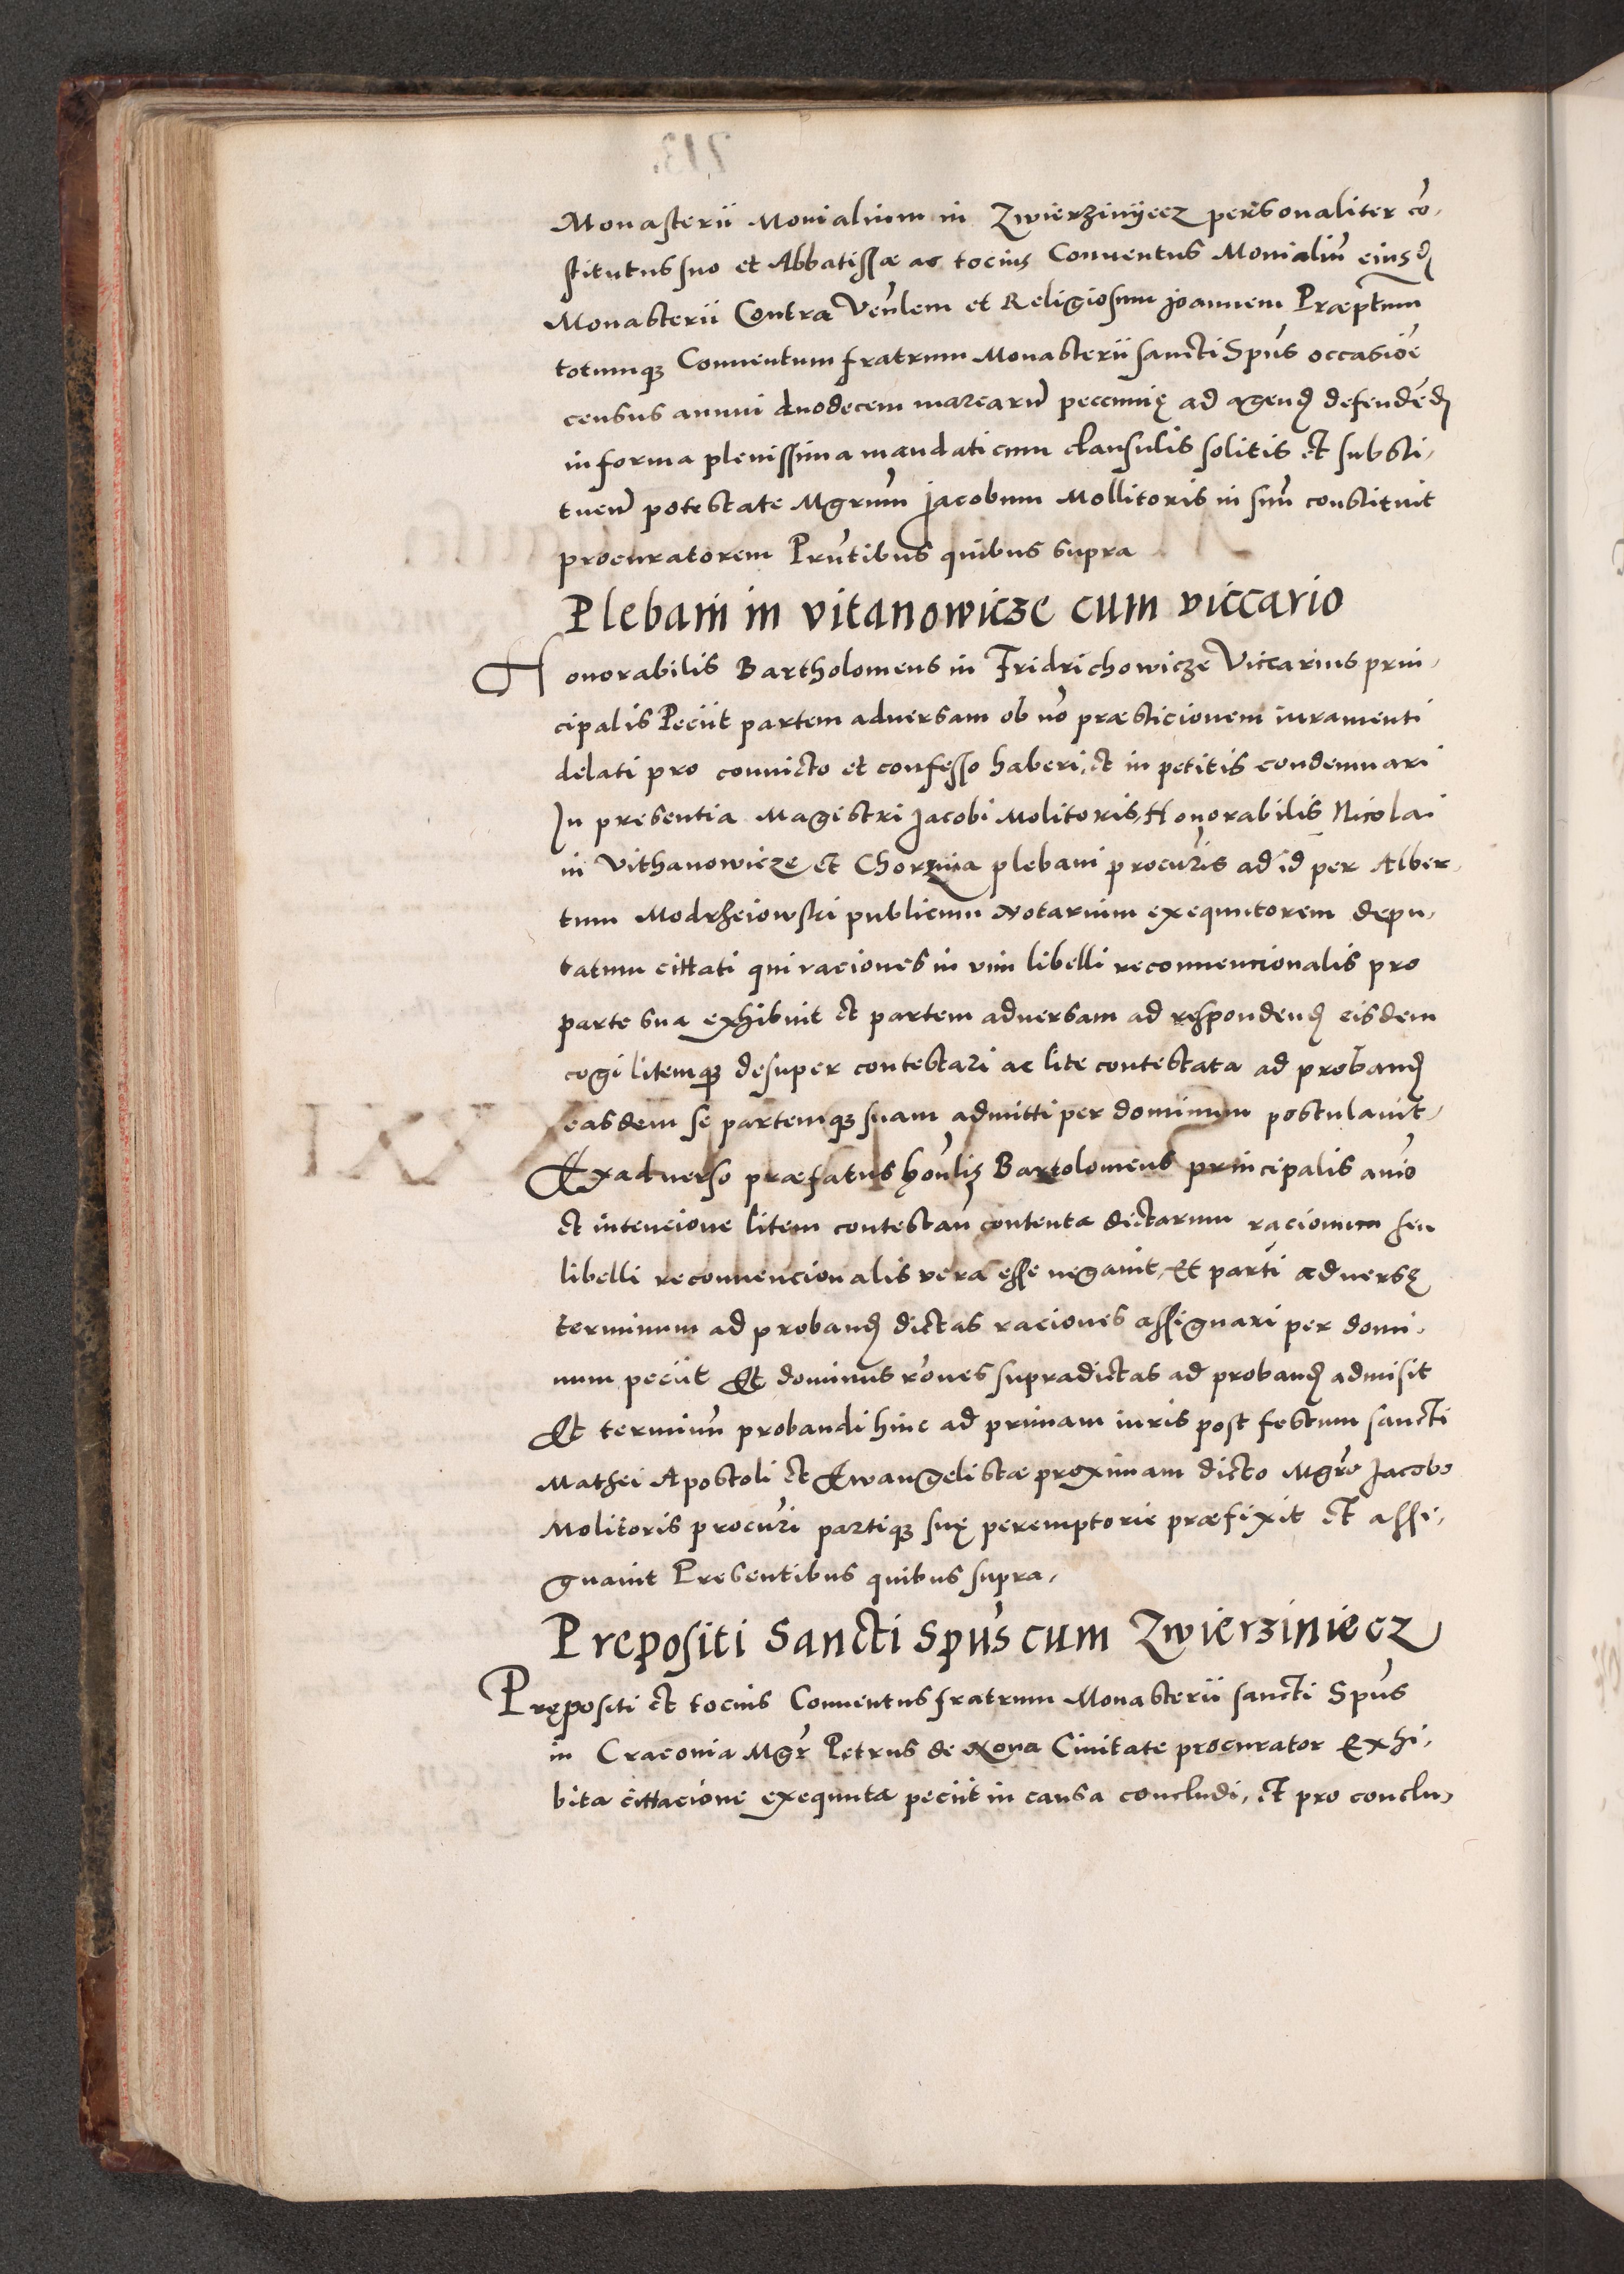 Monasterii Monialium in Zwierzinÿecz personaliter cō,
stitutus suo et Abbatissæ ac tocius Conuentus Monialiū eiusd
Monasterii Contra Venlem et Religiosum joannem Præptum
totumq3 Conuentum fratrum Monasterii sancti Spūs occasiōe
census annui duodecem marcarū peccunię ad agend defendēd
in forma plenissima mandati cum clausulis solitis et substi,
tuen potestate Mgrum jacobum Mollitoris in suū constituit
procuratorem Prntibus quibus supra
Plebani in vitanowicze cum viccario
Honorabilis Bartholomeus in Fridrichowicze Viccarius prin,
cipalis Peciit partem aduersam ob nō præsticionem iuramenti
delati pro conuicto et confesso haberi, et in petitis condemnari
In presentia Magistri Jacobi Molitoris, Honorabilis Nicolai
in Vithanowicze et Chorzna plebani procuris ad id per Alber,
tum Modrzeiowski publicum Notarium exequutorem depu,
tatum cittati qui raciones in vim libelli reconuencionalis pro
parte sua exhibuit et partem aduersam ad respondend eisdem
cogi litemq3 desuper contestari ac lite contestata ad proband
easdem se partemq3 suam admitti per dominum postulauit,
Ex aduerso præfatus honlis Bartolomeus principalis aīo
et intencione litem contestan contenta dictarum racionum seu
libelli reconuencionalis vera esse negauit, Et parti aduersę
terminum ad proband dictas raciones assignari per domi,
num peciit Et dominus rōnes supradictas ad proband admisit
Et terminū probandi hinc ad primam iuris post festum sancti
Mathei Apostoli et Ewangelistæ proximam dicto Mgro Jacobo
Molitoris procuri partiq3 suę peremptorie præfixit et assi,
gnauit Presentibus quibus supra,
Prepositi Sancti Spūs cum Zwierziniecz
Prępositi et tocius Conuentus fratrum Monasterii sancti Spūs
in Cracouia Mgr Petrus de Noua Ciuitate procurator Exhi,
bita cittacione exequuta peciit in causa concludi, et pro conclu,